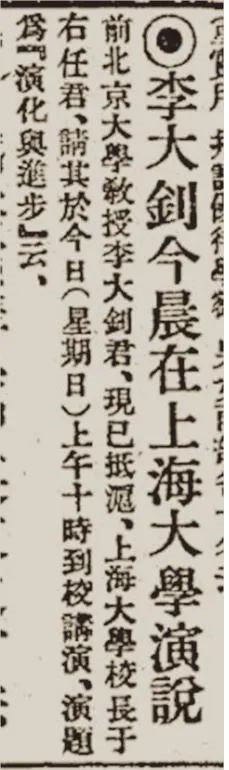 ◉李大釗今晨在上海大學演說
前北京大學敎授李大釗君、現已抵滬、上海大學校長于
右任君、請其於今日(星期日)上午十時到校講演、演題
爲『演化與進步』云、